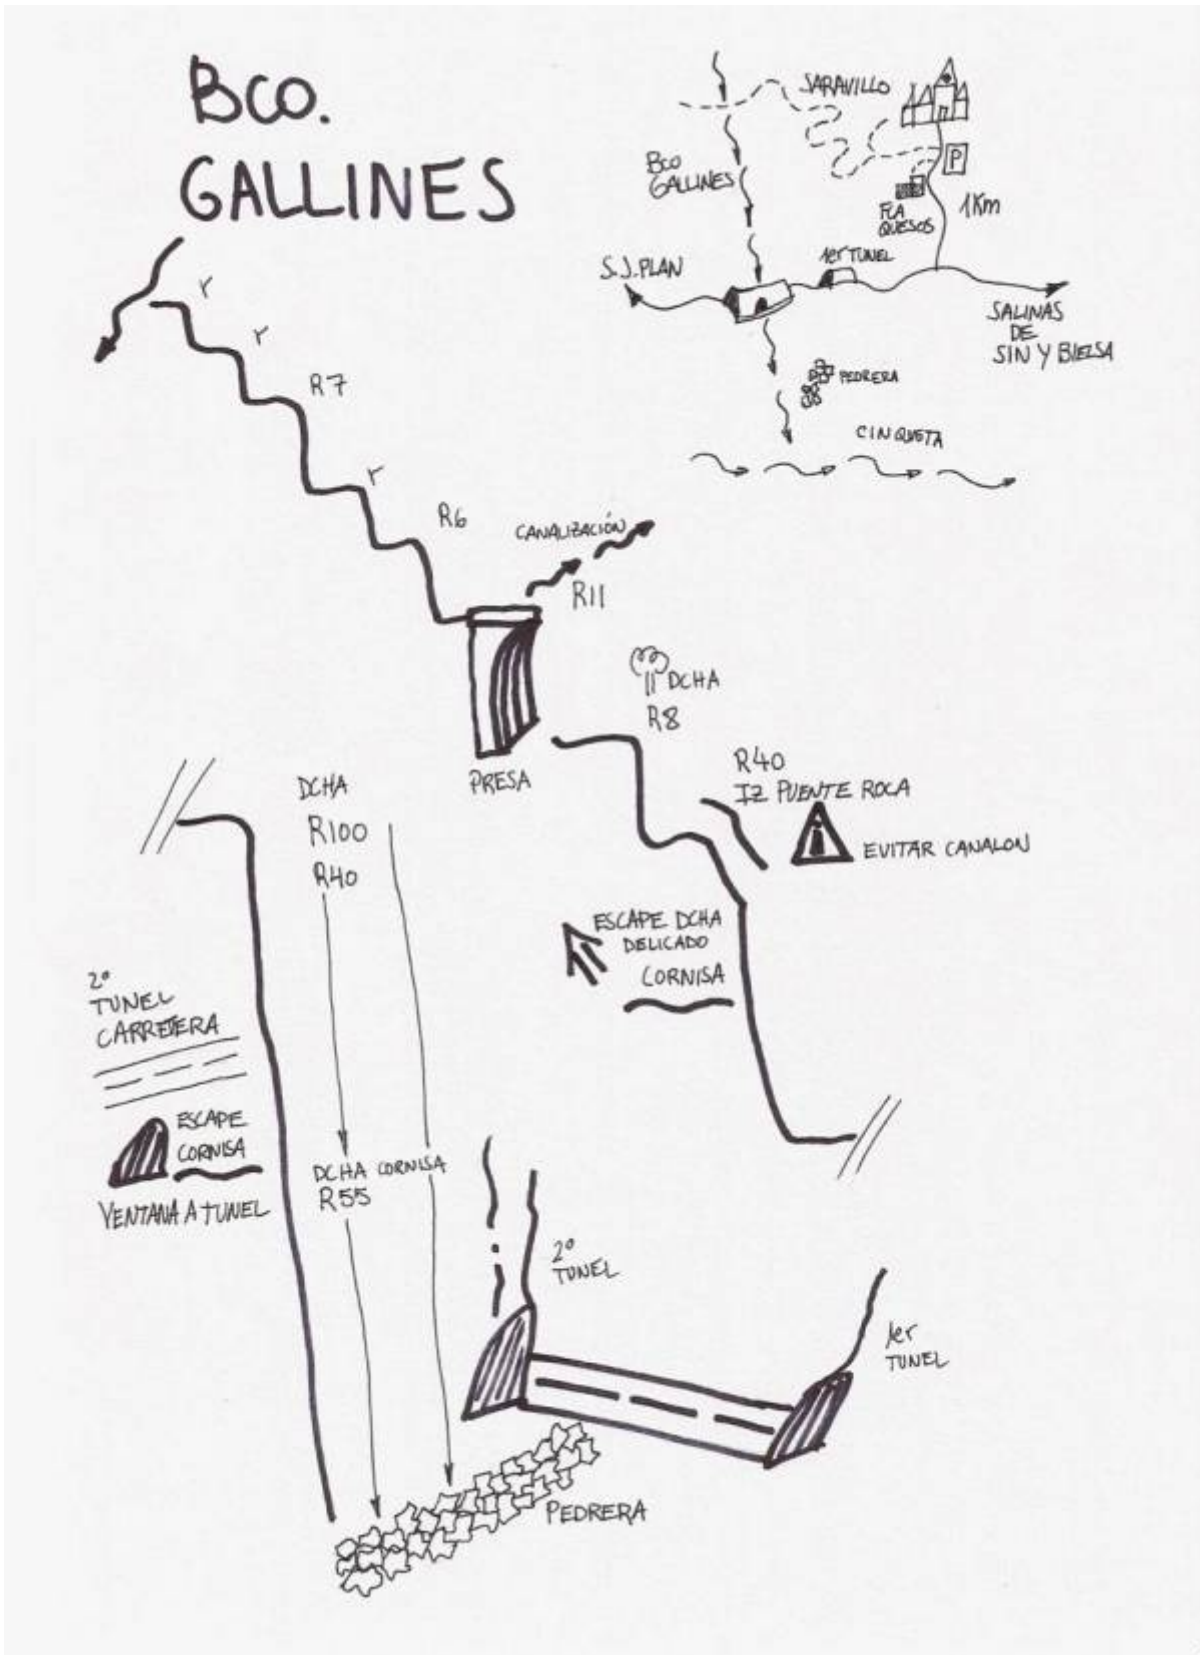 Bco.
GALLINES
SARAVILLO
P
BCO
GALLINES
FCA
QUESOS
1Km
S.J.PLAN
1er TUNEL
SALINAS
DE
SIN Y BIELSA
PEDRERA
CINQUETA
r
r
R7
r
R6
CANALIZACIÓN
R11
DCHA
R8
PRESA
R40
IZ PUENTE ROCA
EVITAR CANALON
ESCAPE DCHA
DELICADO
CORNISA
DCHA
R100
R40
2º
TUNEL
CARRETERA
ESCAPE
CORNISA
VENTANA A TUNEL
DCHA CORNISA
R55
2º
TUNEL
1er
TUNEL
PEDRERA